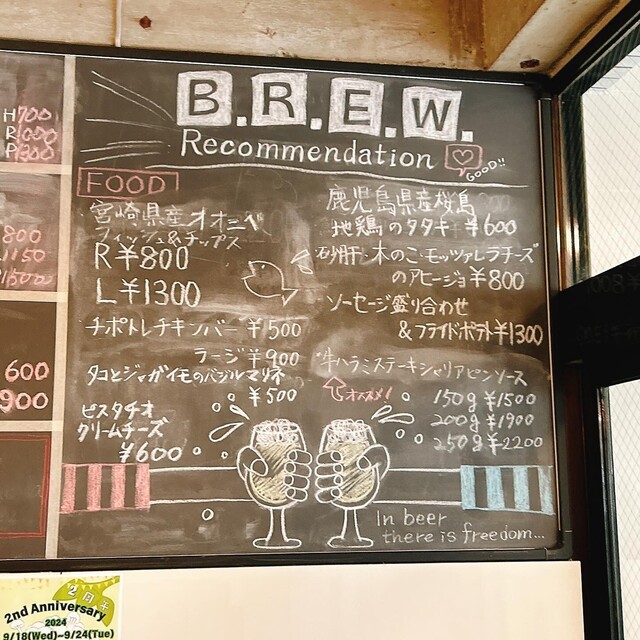 H700
R1000
P1300
800
1150
1500
600
900
B.R.E.W.
Recommendation
GOOD!!
FOOD
宮崎県産オオニベ
フィッシュ&チップス
R¥800
L¥1300
チポトレチキンバー ¥500
ラージ¥900
タコとジャガイモのバジルマリネ
¥500
ピスタチオ
クリームチーズ
¥600
鹿児島県産桜島
地鶏のタタキ ¥600
砂肝・木のこ・モッツァレラチーズ
のアヒージョ¥800
ソーセージ盛り合わせ
&フライドポテト¥1300
牛ハラミステーキシャリアピンソース
オススメ!
150g ¥1500
200g ¥1900
250g ¥2200
In beer
there is freedom...
2nd Anniversary
2024
9/18(Wed)~9/24(Tue)